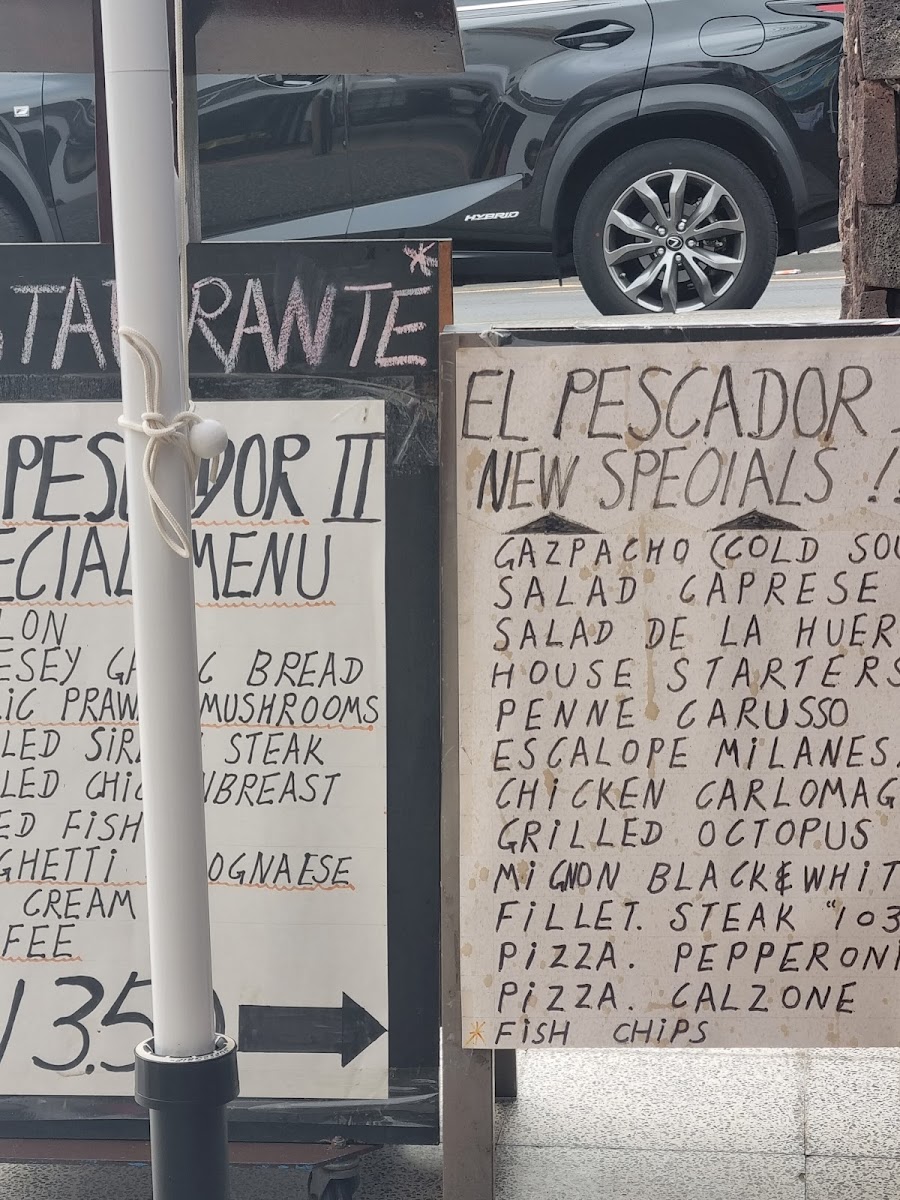 HYBRID
STAURANTE*
PESCADOR II
ECIAL MENU
LON
ESEY GARLIC BREAD
LIC PRAWN MUSHROOMS
LED SIRLOIN STEAK
LED CHICKEN BREAST
ED FISH
GHETTI BOLOGNAESE
CREAM
FEE
13.50
EL PESCADOR
NEW SPECIALS !!
GAZPACHO (COLD SOU
SALAD CAPRESE
SALAD DE LA HUER
HOUSE STARTERS
PENNE CARUSSO
ESCALOPE MILANES
CHICKEN CARLOMAG
GRILLED OCTOPUS
MIGNON BLACK & WHIT
FILLET. STEAK "103
PIZZA. PEPPERONI
PIZZA. CALZONE
* FISH CHIPS